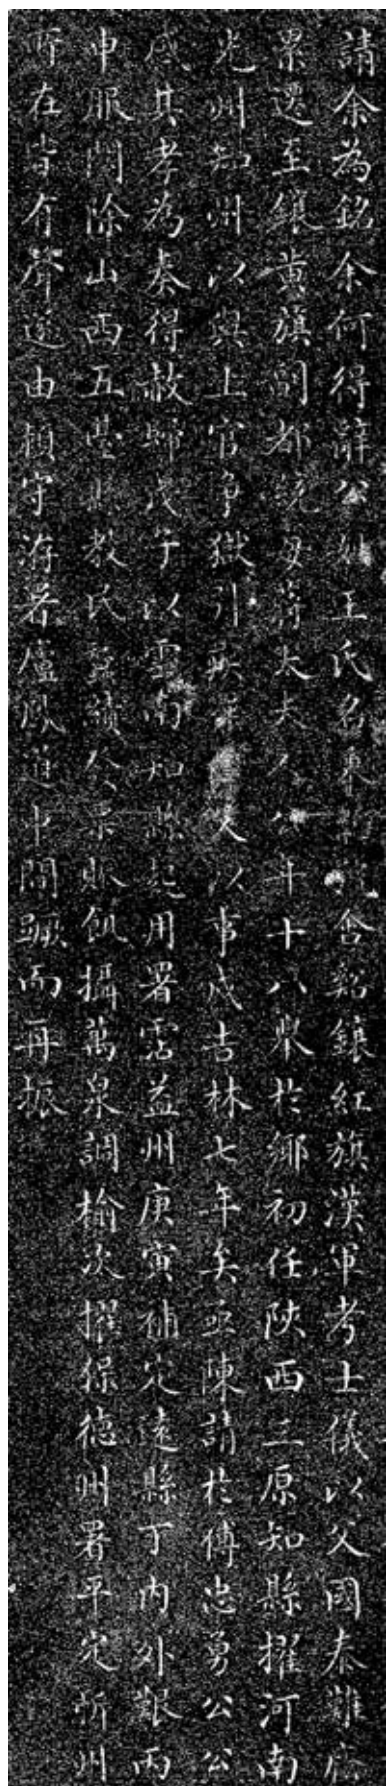 請余為銘余何得辭公姓王氏名秉韜號含谿鑲紅旗漢軍考士儀以父國泰難廕
累遷至鑲黃旗副都統母蔣太夫人公年十八舉於鄉初任陝西三原知縣擢河南
光州知州以與上官爭獄引疾又以事戍吉林七年矣亟陳請於傅忠勇公公
感其孝為奏得赦歸戊子以雲南知縣起用署霑益州庚寅補定遠縣丁內外艱丙
申服闋除山西五臺縣教民蠶績公賑飢攝萬泉調榆次擢保德州署平定忻州
所在皆有聲遂由潁守洊署廬鳳道中間蹶而再振